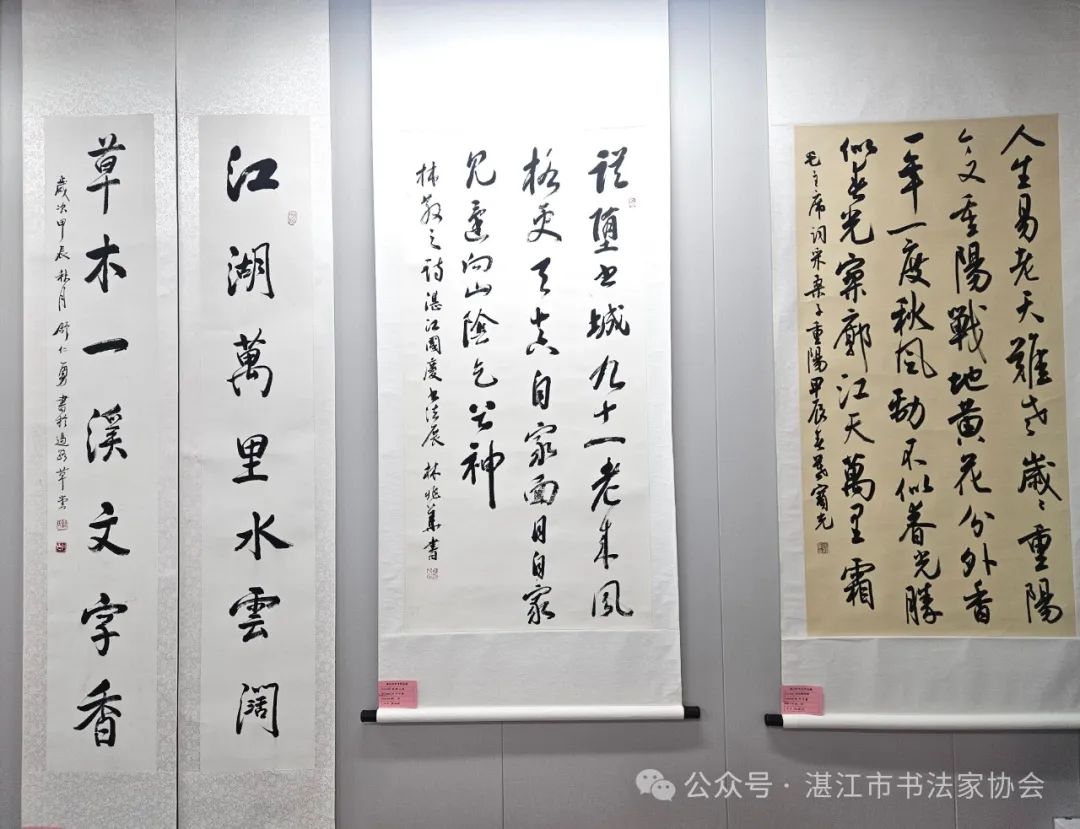 人生易老天難老歲々重陽
今又重陽戰地黄花分外香
一年一度秋風勁不似春光勝
似春光寥廓江天萬里霜
毛主席词采桑子重陽甲辰
誤墮書城九十一老来風
格更天真自家面目自家
見還向山陰乞神
林散之詩湛江國慶书法展 林兆華書
江湖萬里水雲闊
草木一溪文字香
歲次甲辰秋月仁勇書於草堂
公众号·湛江市书法家协会